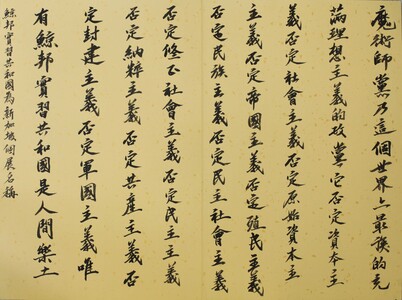 魔術師黨乃這個世界上最的充
滿理想主義的政黨它否定資本主
義否定社會主義否定原始資本主
主義否定帝國主義否定殖民主義
否定民族主義否定民主社會主義
否定修正社會主義否定民主主義
否定納粹主義否定共產主義否
定封建主義否定軍國主義唯
有鯨邦實習共和國是人間樂土
鯨邦實習共和國為新加坡個展名稱